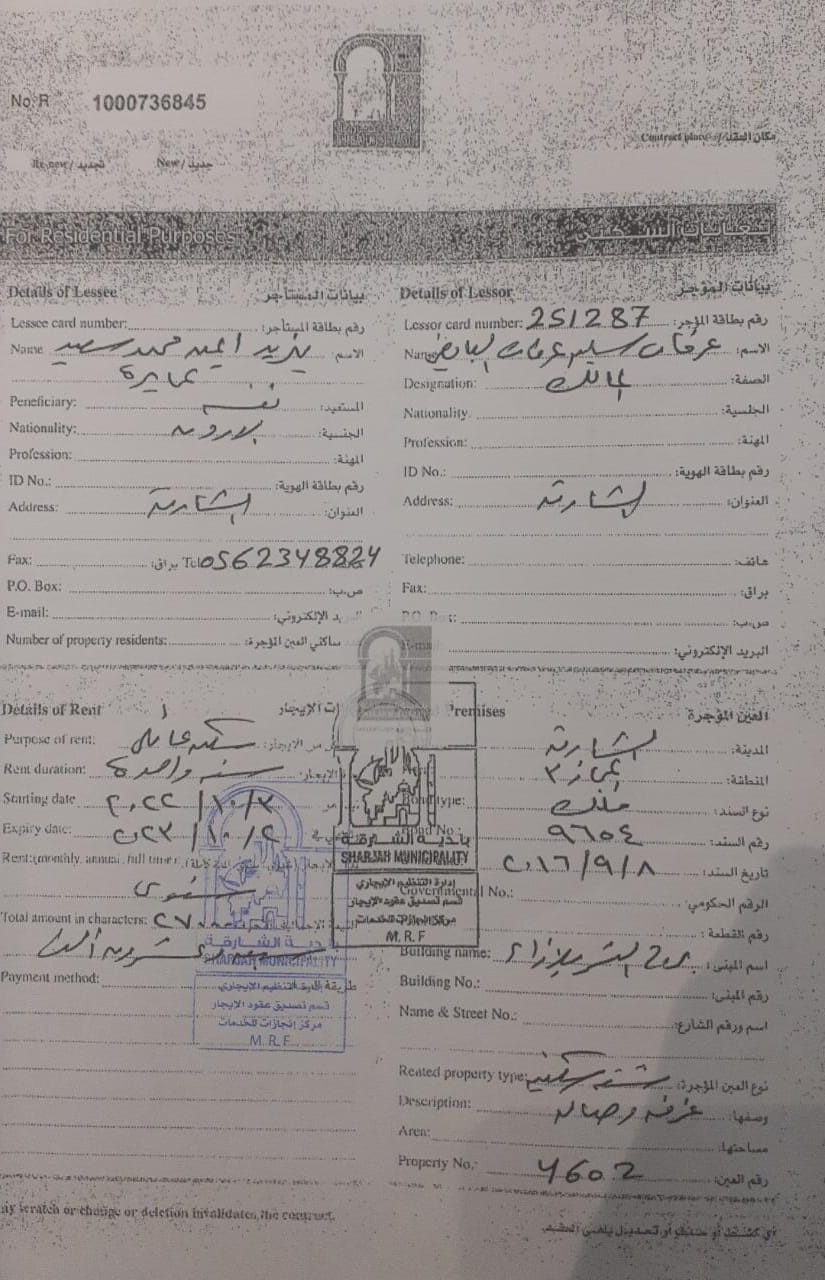 No. R 1000736845
Contract place / مكان العقد
Re new / تجديد New / جديد
For Residential Purposes لغايات السكنى
Details of Lessee بيانات المستأجر
Lessee card number: رقم بطاقة المستأجر:
Name يزيد امين محمد سعيد الاسم:
عمايرة
Peneficiary: نفسه المستفيد:
Nationality: الاردن الجنسية:
Profession: المهنة:
ID No.: رقم بطاقة الهوية:
Address: الشارقة العنوان:
Fax: براق: Tel 0562348824
P.O. Box: ص.ب:
E-mail: البريد الإلكتروني:
Number of property residents: ساكني العين المؤجرة:
Details of Lessor بيانات المؤجر
Lessor card number: 251287 رقم بطاقة المؤجر:
Name عرفان سليم عرفان الاسم:
Designation: المالك الصفة:
Nationality. الجلسية:
Profession: المهنة:
ID No.: رقم بطاقة الهوية:
Address: الشارقة العنوان:
Telephone: هاتف:
Fax: براق:
P.O. Box: ص.ب:
E-mail البريد الإلكتروني:
Details of Rent ت الإيجار
Purpose of rent: سكن عائلي من الإيجار:
Rent duration: سنة واحدة الإيجار:
Starting date ٢٠٢٢/١٠/٣
Expiry date: ٢٠٢٣/١٠/٢
Rent:(monthly, annual, full time)
سنوي
Total amount in characters: ٢٧٠٠٠
Payment method: طريقة
Premises العين المؤجرة
الشارقة المدينة:
٣ المنطقة:
Bond type: ملك نوع السند:
Bond No.: ٩٦٥٤ رقم السند:
٢٠١٦/٩/٨ تاريخ السند:
Governmental No.: الرقم الحكومي:
رقم القطعة:
Building name: برج اسم المبنى:
Building No.: رقم المبنى:
Name & Street No.: اسم ورقم الشارع:
Rented property type: شقة سكنية نوع العين المؤجرة:
Description: غرفة وصالة وصفها:
Area: مساحتها:
Property No.: 4602 رقم العين:
بلدية الشارقة
SHARJAH MUNICIPALITY
إدارة التنظيم الإيجاري
قسم تصديق عقود الإيجار
مركز إنجازات للخدمات
M.R.F
بلدية الشارقة
SHARJAH MUNICIPALITY
إدارة التنظيم الإيجاري
قسم تصديق عقود الإيجار
مركز إنجازات للخدمات
M.R.F
ny scratch or change or deletion invalidates the contract.
أي كشط أو حذف أو تعديل يلغي العقد.